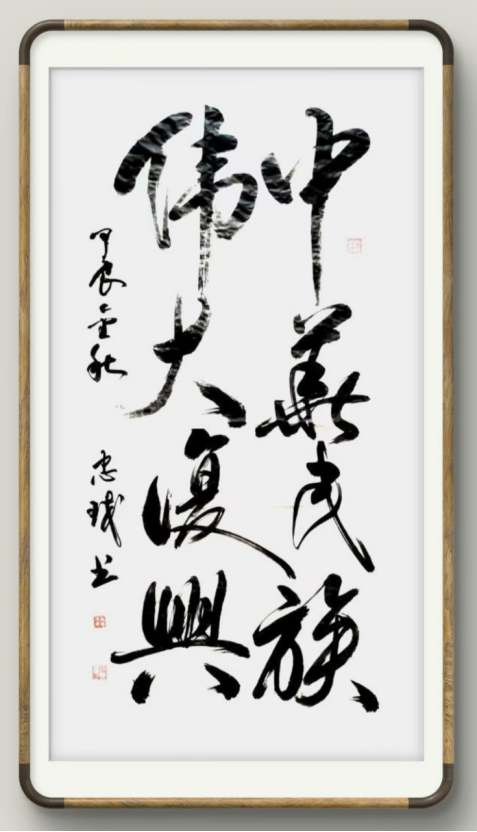 中華民族
伟大復興
甲辰金秋
忠诚书